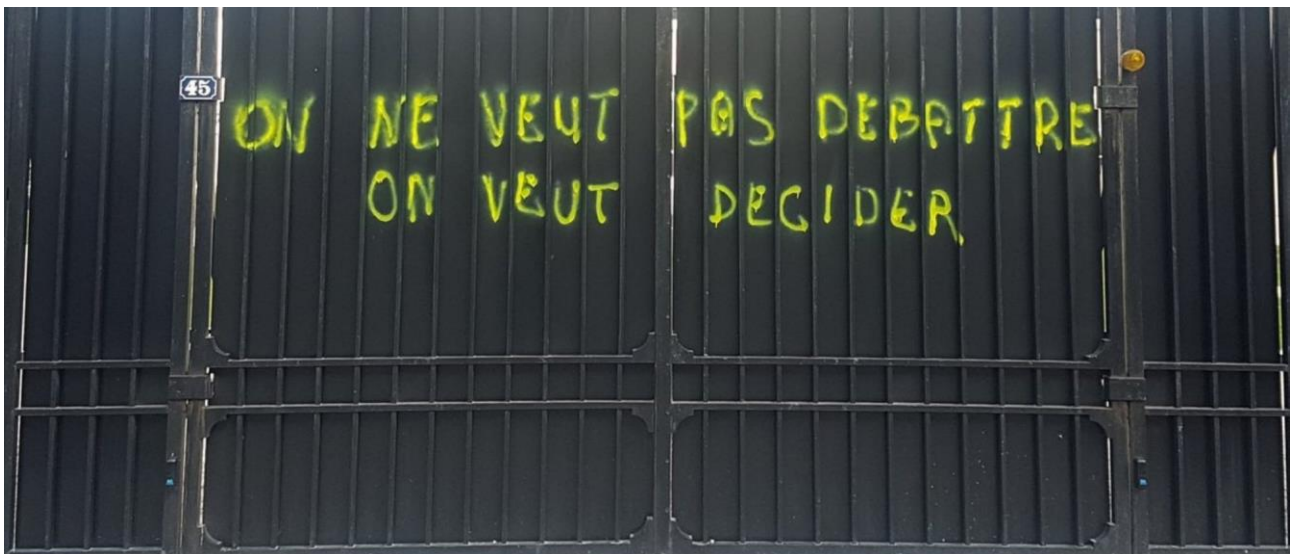 45
ON NE VEUT PAS DEBATTRE
ON VEUT DECIDER